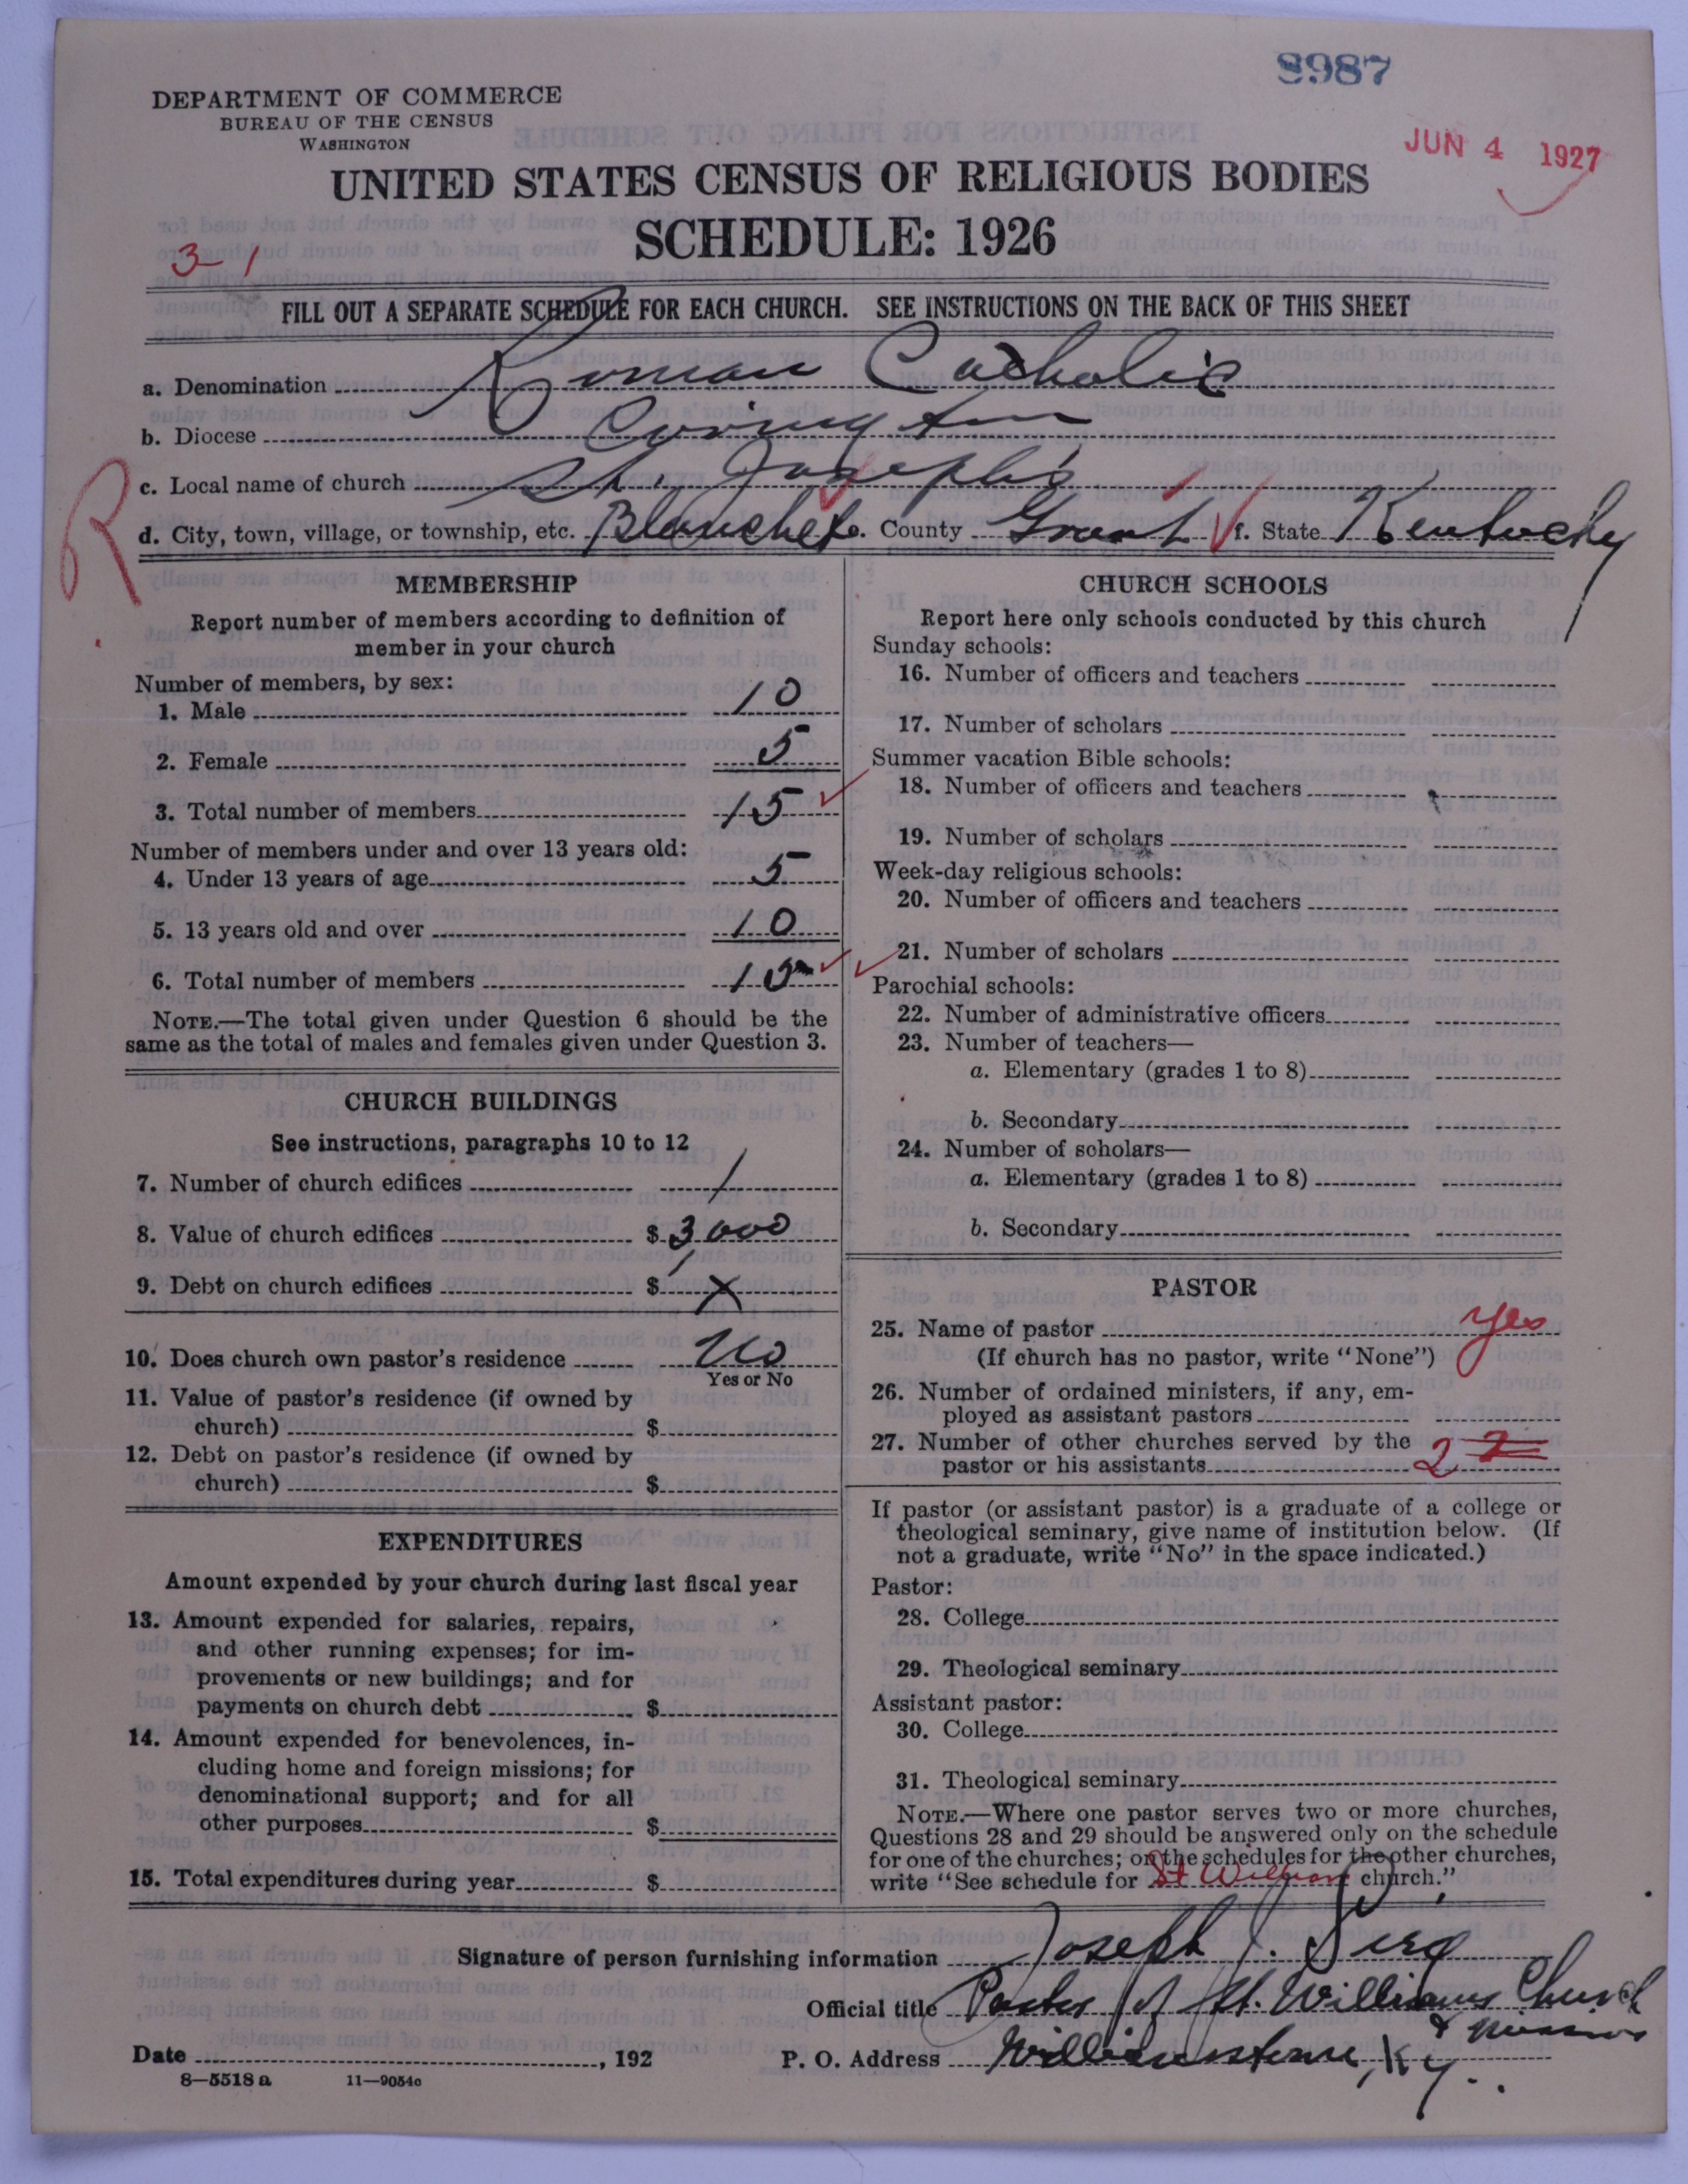 8987
DEPARTMENT OF COMMERCE
BUREAU OF THE CENSUS
WASHINGTON
JUN 4 1927
UNITED STATES CENSUS OF RELIGIOUS BODIES
SCHEDULE: 1926
3-1
FILL OUT A SEPARATE SCHEDULE FOR EACH CHURCH. SEE INSTRUCTIONS ON THE BACK OF THIS SHEET
a. Denomination Roman Catholic
b. Diocese Covington
c. Local name of church St. Joseph's
R
d. City, town, village, or township, etc. Blanchet e. County Grant f. State Kentucky
MEMBERSHIP
Report number of members according to definition of
member in your church
Number of members, by sex:
1. Male 10
2. Female 5
3. Total number of members 15
Number of members under and over 13 years old:
4. Under 13 years of age 5
5. 13 years old and over 10
6. Total number of members 15
NOTE.—The total given under Question 6 should be the
same as the total of males and females given under Question 3.
CHURCH BUILDINGS
See instructions, paragraphs 10 to 12
7. Number of church edifices 1
8. Value of church edifices $ 3,000
9. Debt on church edifices $ X
10. Does church own pastor's residence No
Yes or No
11. Value of pastor's residence (if owned by
church) $
12. Debt on pastor's residence (if owned by
church) $
EXPENDITURES
Amount expended by your church during last fiscal year
13. Amount expended for salaries, repairs,
and other running expenses; for im-
provements or new buildings; and for
payments on church debt $
14. Amount expended for benevolences, in-
cluding home and foreign missions; for
denominational support; and for all
other purposes $
15. Total expenditures during year $
CHURCH SCHOOLS
Report here only schools conducted by this church
Sunday schools:
16. Number of officers and teachers
17. Number of scholars
Summer vacation Bible schools:
18. Number of officers and teachers
19. Number of scholars
Week-day religious schools:
20. Number of officers and teachers
21. Number of scholars
Parochial schools:
22. Number of administrative officers
23. Number of teachers—
a. Elementary (grades 1 to 8)
b. Secondary
24. Number of scholars—
a. Elementary (grades 1 to 8)
b. Secondary
PASTOR
25. Name of pastor yes
(If church has no pastor, write "None")
26. Number of ordained ministers, if any, em-
ployed as assistant pastors
27. Number of other churches served by the
pastor or his assistants 2
If pastor (or assistant pastor) is a graduate of a college or
theological seminary, give name of institution below. (If
not a graduate, write "No" in the space indicated.)
Pastor:
28. College
29. Theological seminary
Assistant pastor:
30. College
31. Theological seminary
NOTE.—Where one pastor serves two or more churches,
Questions 28 and 29 should be answered only on the schedule
for one of the churches; on the schedules for the other churches,
write "See schedule for St William church."
Signature of person furnishing information Joseph J.
Official title Pastor of St. Williams Church
& Missions
Date , 192 P. O. Address Williamstown, Ky.
8—5518 a 11—9054c